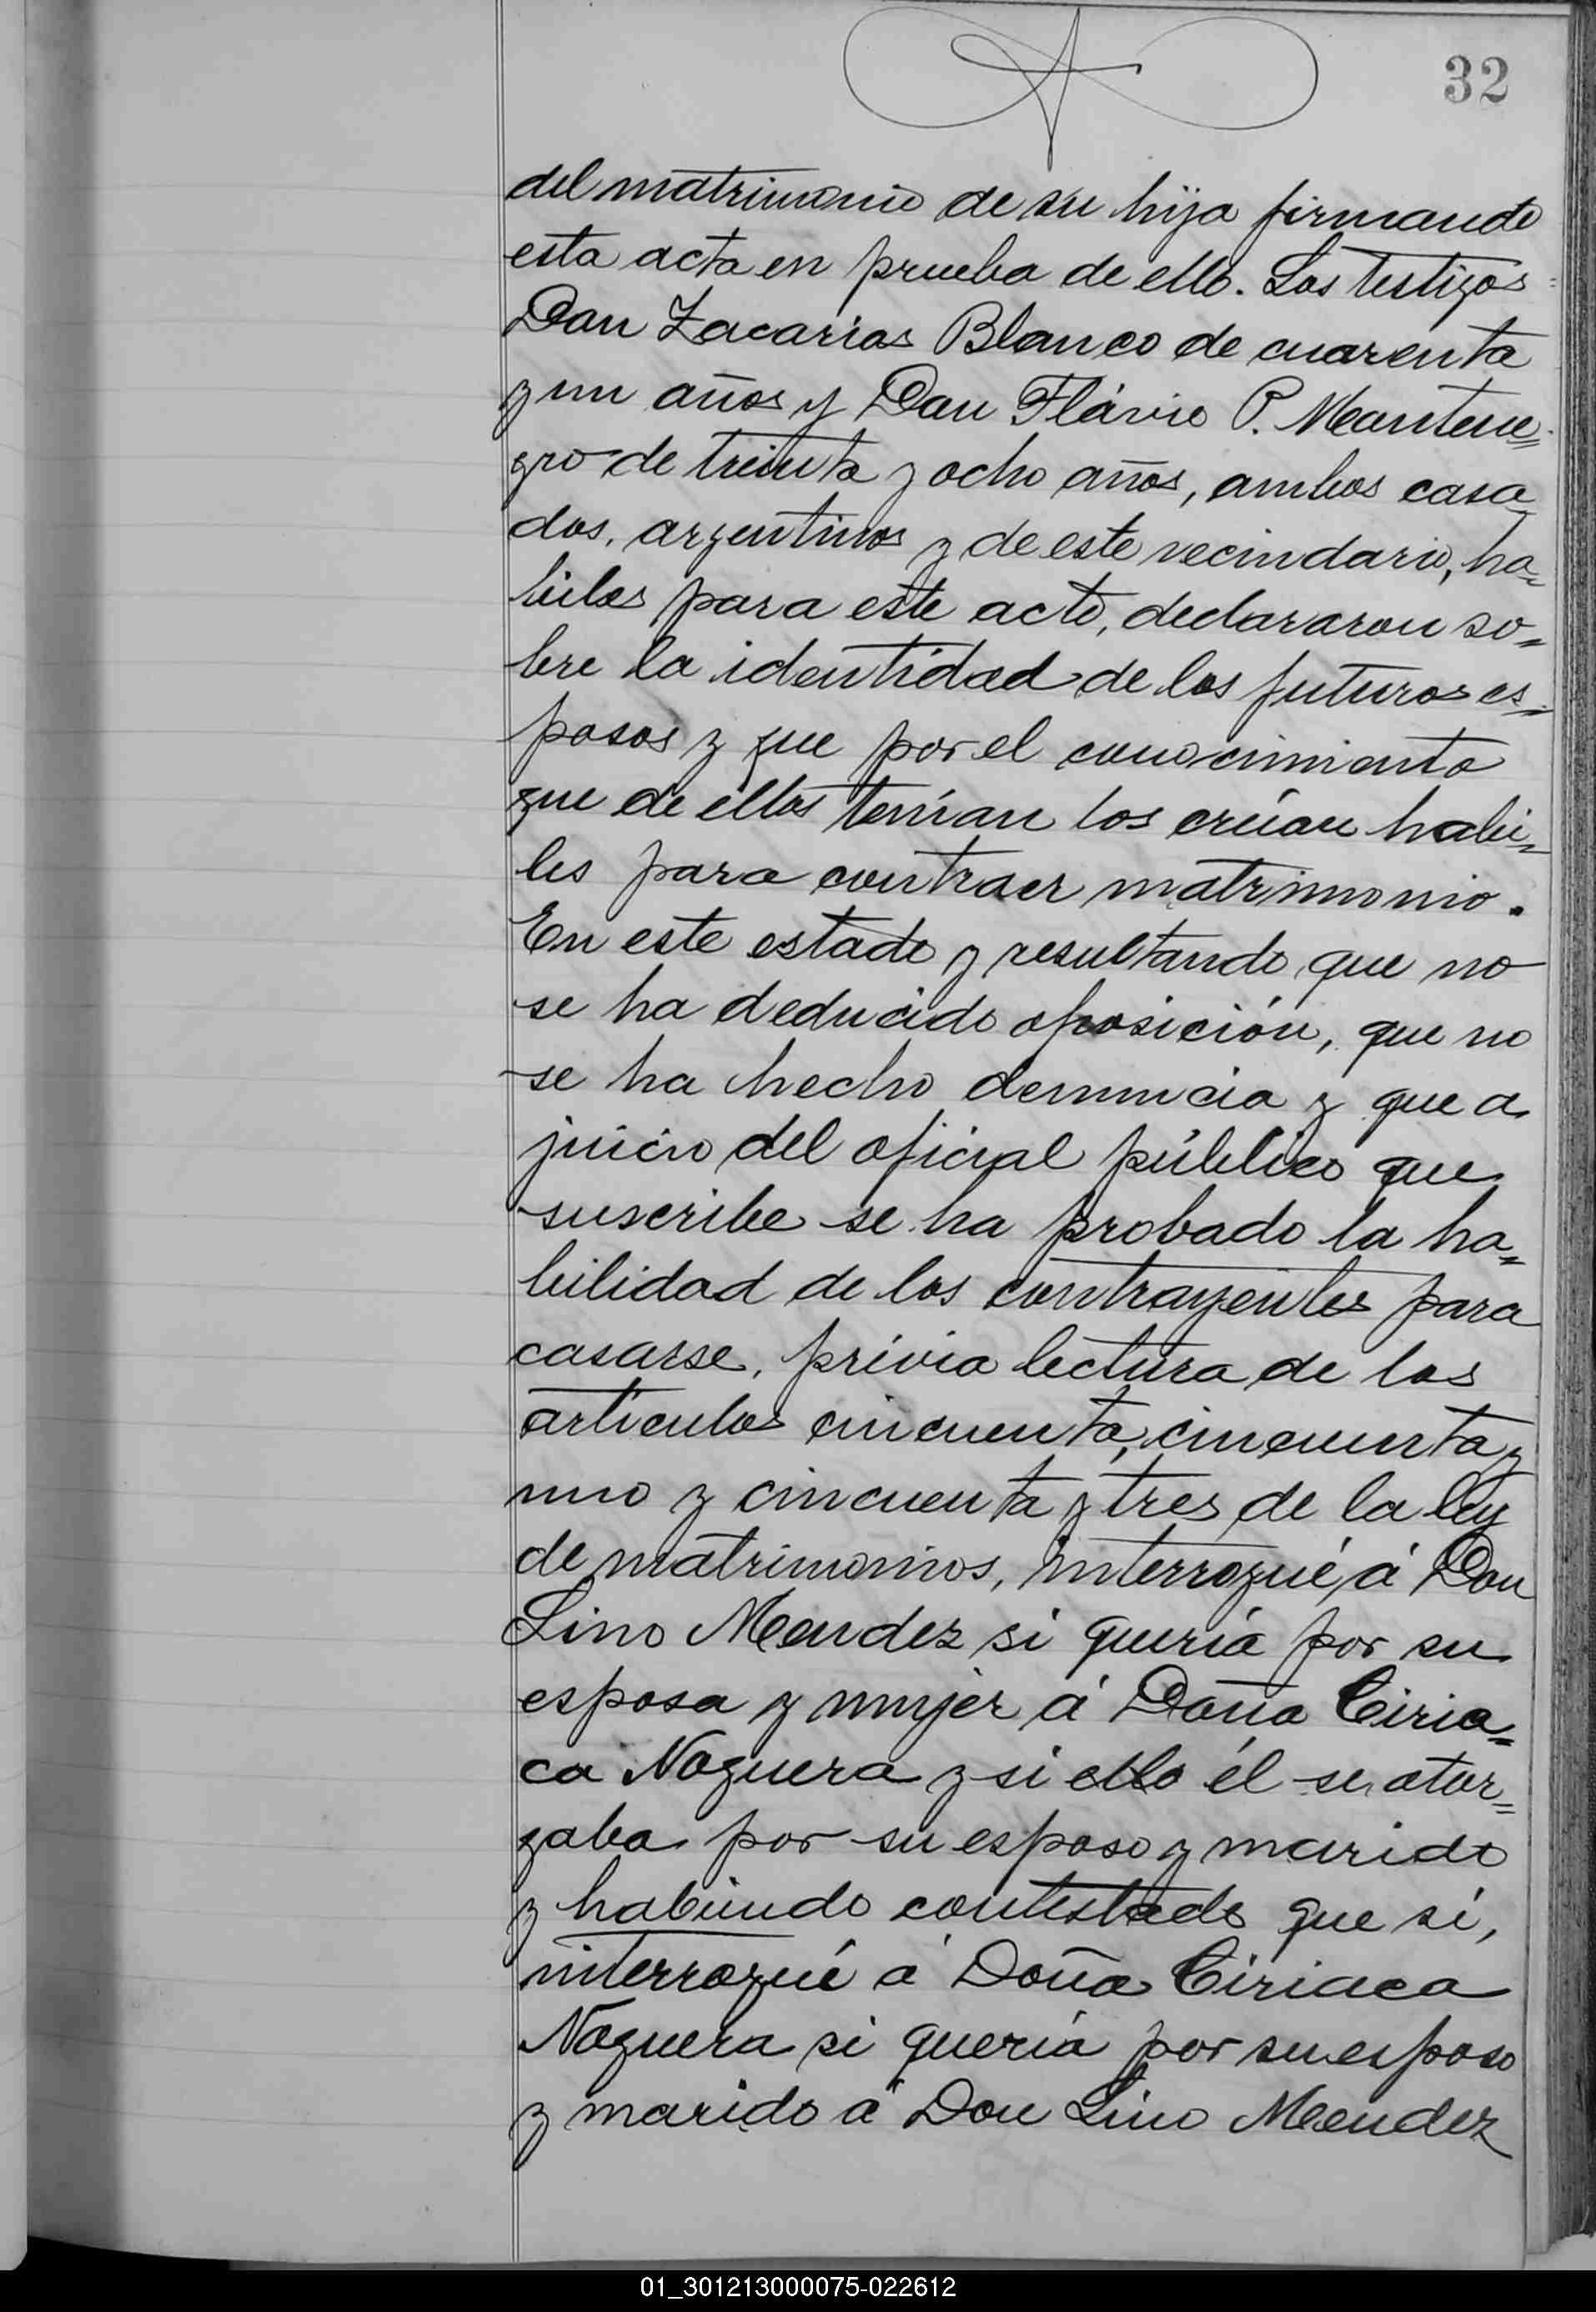 32
del matrimonio de su hija firmando
esta acta en prueba de ello. Los testigos
Don Zacarias Blanco de cuarenta
y un años y Don Flávio P. Montene=
gro de treinta y ocho años, ambos casa=
dos, argentinos y de este vecindario, ha=
biles para este acto, declararon so=
bre la identidad de los futuros es=
posos y que por el conocimiento
que de ellos tenían los creían habi=
les para contraer matrimonio.
En este estado y resultando que no
se ha deducido oposición, que no
se ha hecho denuncia y que a
juicio del oficial público que
suscribe se ha probado la ha=
bilidad de los contrayentes para
casarse, prévia lectura de los
artículos cincuenta, cincuenta y
uno y cincuenta y tres de la ley
de matrimonios, interrogué á Don
Lino Mendez si quería por su
esposa y mujer á Doña Ciria=
ca Noguera y si ello él se otor=
gaba por su esposo y marido
y habiendo contestado que sí,
interrogué á Doña Ciriaca
Noguera si quería por su esposo
y marido á Don Lino Mendez
01_301213000075-022612